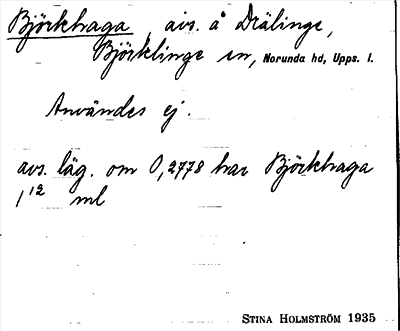 Björkhaga, avs. å Drälinge,
Björklinge sn, Norunda hd, Upps. l.
Användes ej.
avs. läg. om 0,2778 har Björkhaga
1 12 ml
STINA HOLMSTRÖM 1935